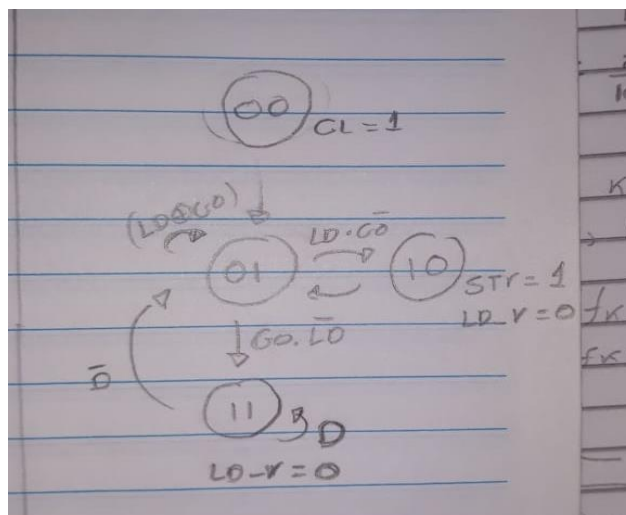 00
CL = 1
(LD⊕GO)
LD·G̅O̅
01
10
STr = 1
LD_r = 0
GO.L̅D̅
D̅
11
D
LD-r = 0
fK
fK
K